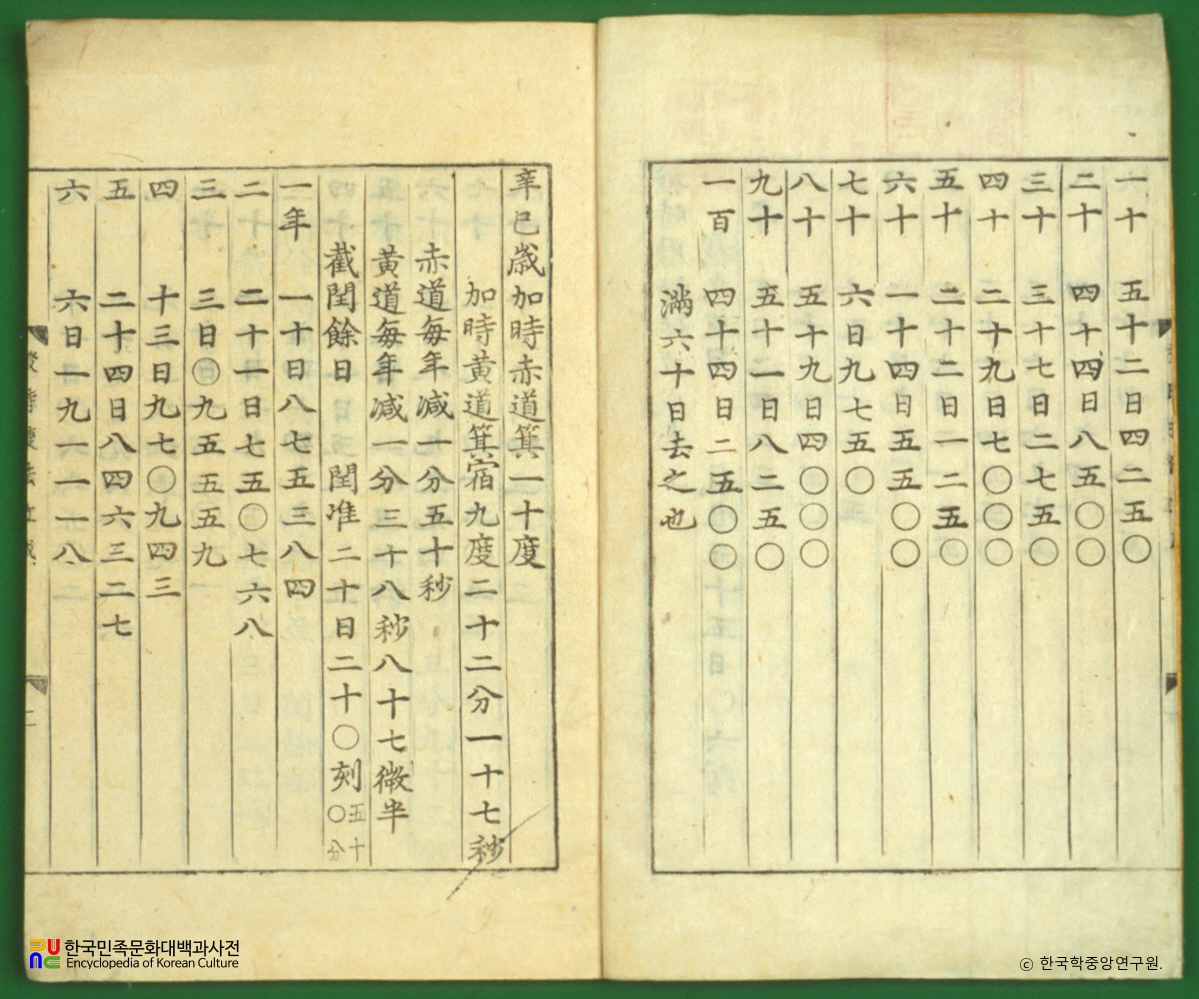 一十 五十二日四二五〇
二十 四十四日八五〇〇
三十 三十七日二七五〇
四十 二十九日七〇〇〇
五十 二十二日一二五〇
六十 一十四日五五〇〇
七十 六日九七五〇
八十 五十九日四〇〇〇
九十 五十一日八二五〇
一百 四十四日二五〇〇
滿六十日去之也
辛巳歲加時赤道箕一十度
加時黃道箕宿九度二十二分一十七秒
赤道每年減一分五十秒
黃道每年減一分三十八秒八十七微半
截閏餘日 閏准二十日二十〇刻五十〇分
一年 一十日八七五三八四
二 二十一日七五〇七六八
三 三日〇九五五五九
四 十三日九七〇九四三
五 二十四日八四六三二七
六 六日一九六一一八
한국민족문화대백과사전
Encyclopedia of Korean Culture
© 한국학중앙연구원.